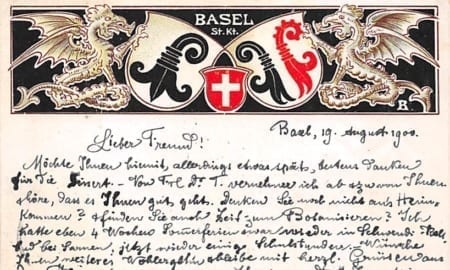 BASEL
St. Kt.
R
Basel, 19. August 1900.
Lieber Freund!
Möchte Ihnen hiemit, allerdings etwas spät, bestens danken
für die – Von Frl. Dr. T. vernehme ich ab zu von Ihnen
höre, dass es Ihnen gut geht. Denken Sie noch nicht aus Heim-
kommen? & finden Sie auch Zeit zum Botanisieren? Ich
hatte eben 4 Wochen Sommerferien war wieder in Schwendi
bei Sarnen, jetzt wieder einige Schulstunden. – Wünsche
Ihnen weiteres Wohlergehn & bleibe mit herzl. Grüssen